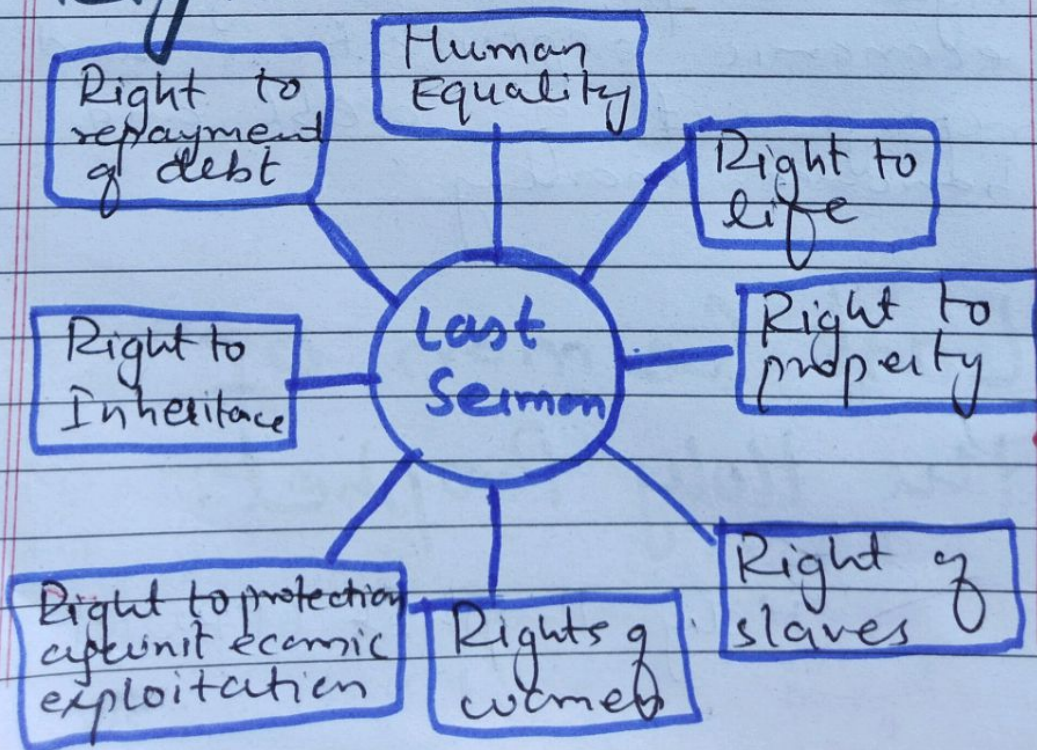 Human
Equality
Right to
repayment
of debt
Right to
life
Right to
property
Last
Sermon
Right to
Inheritace
Right of
slaves
Right to protection
against ecomic
exploitation
Rights of
women